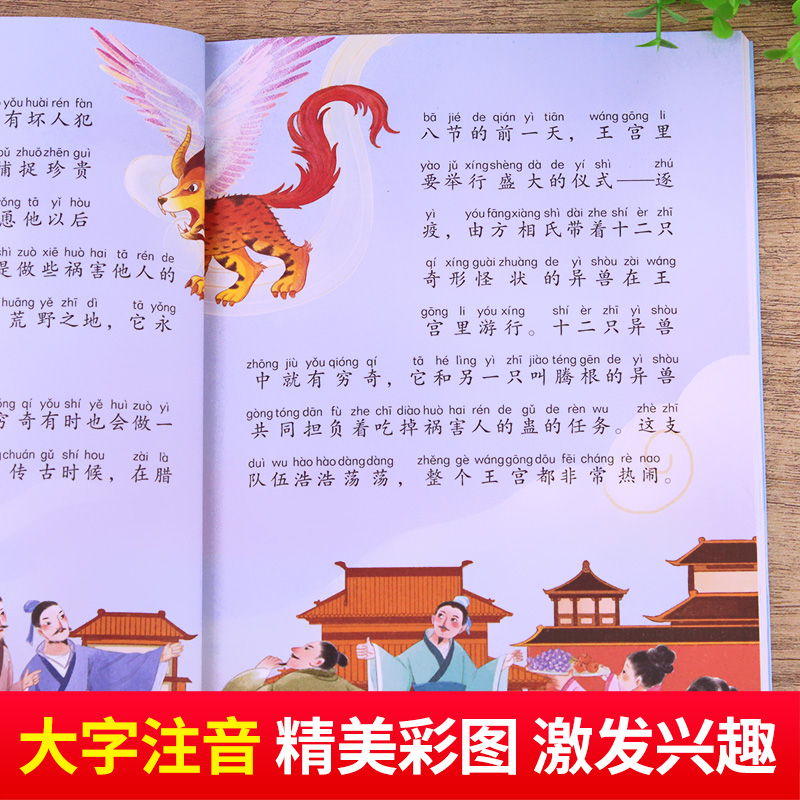 yǒu huài rén fàn
有坏人犯
zhuō zhēn guì
捕捉珍贵
tā yǐ hòu
愿他以后
shì zuò xiē huò hai tā rén de
是做些祸害他人的
huāng yě zhī dì tā yǒng
荒野之地，它永
qí yǒu shí yě huì zuò yì
穷奇有时也会做一
chuán gǔ shí hou zài là
传古时候，在腊
bā jié de qián yì tiān wáng gōng li
八节的前一天，王宫里
yào jǔ xíng shèng dà de yí shì zhú
要举行盛大的仪式——逐
yì yóu fāng xiàng shì dài zhe shí èr zhī
疫，由方相氏带着十二只
qí xíng guài zhuàng de yì shòu zài wáng
奇形怪状的异兽在王
gōng li yóu xíng shí èr zhī yì shòu
宫里游行。十二只异兽
zhōng jiù yǒu qióng qí tā hé lìng yì zhī jiào téng gēn de yì shòu
中就有穷奇，它和另一只叫腾根的异兽
gòng tóng dān fù zhe chī diào huò hai rén de gǔ de rèn wu zhè zhī
共同担负着吃掉祸害人的蛊的任务。这支
duì wu hào hào dàng dàng zhěng gè wáng gōng dōu fēi cháng rè nao
队伍浩浩荡荡，整个王宫都非常热闹。
大字注音 精美彩图 激发兴趣